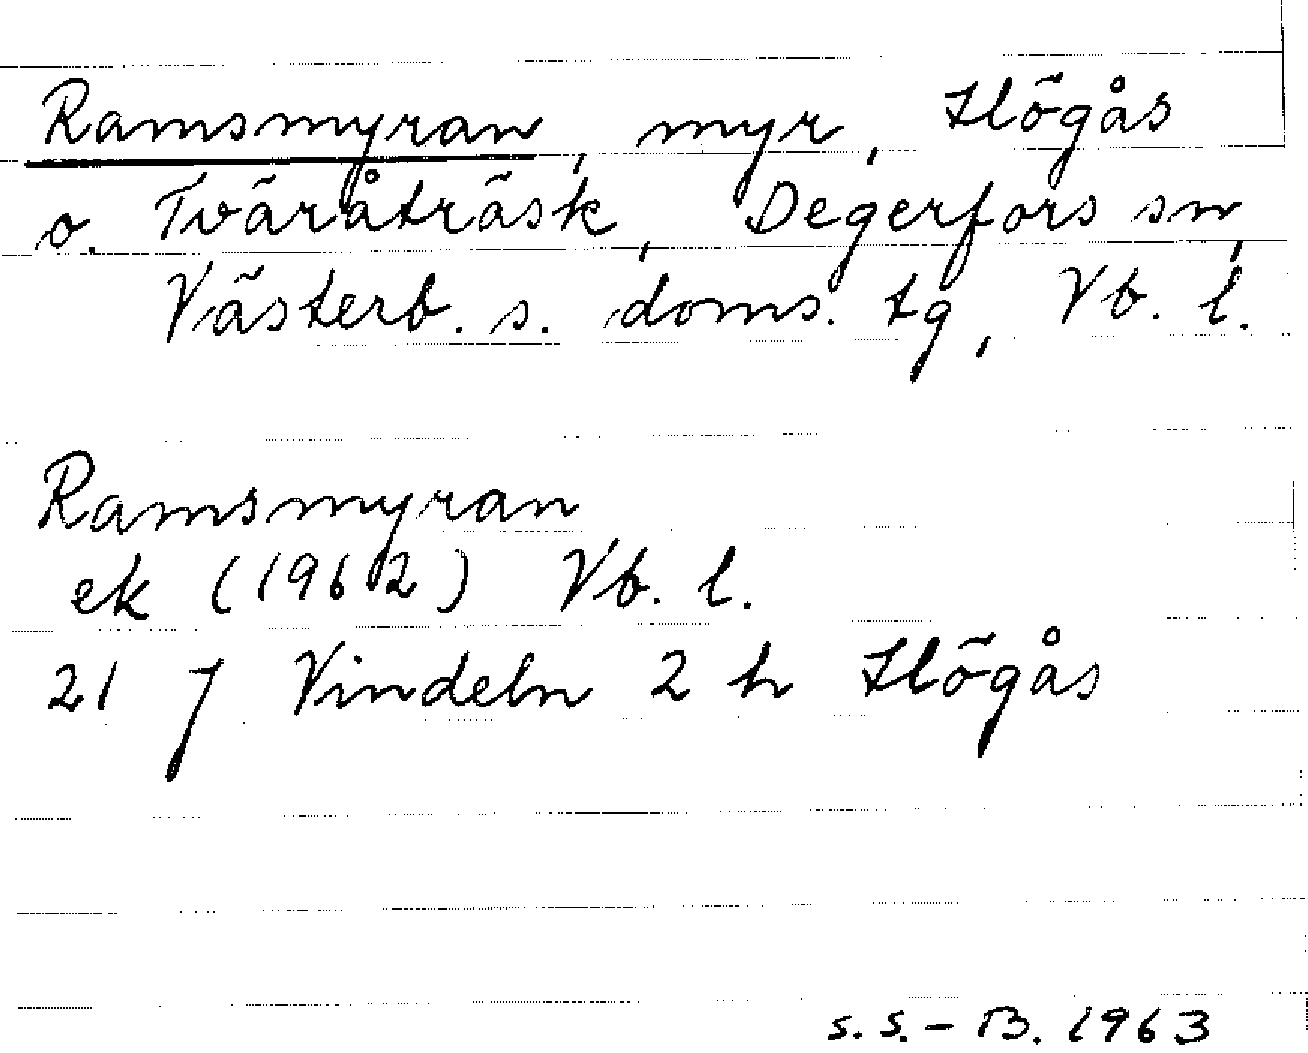 Ramsmyran, myr, Högås
o. Tväråträsk, Degerfors sn,
Västerb. s. doms. tg, Vb. l.
Ramsmyran
ek (1962) Vb. l.
21 J Vindeln 2 h Högås
S. S. - B. 1963